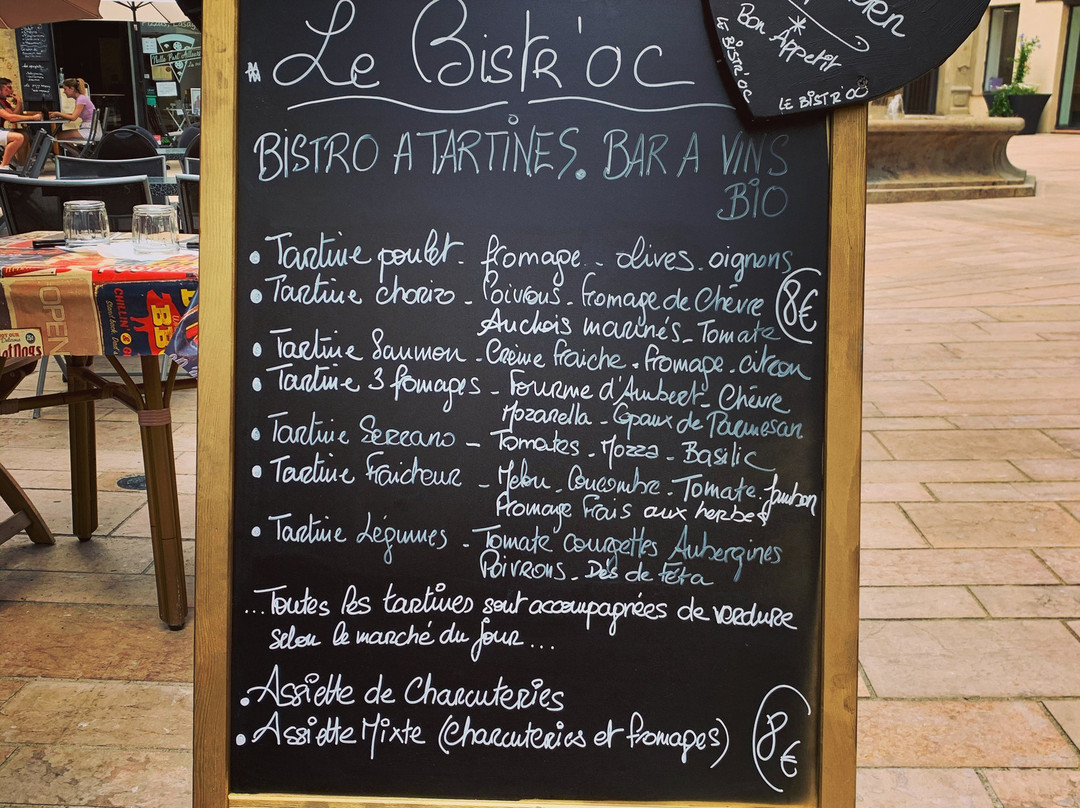 Le Bistr'oc
BISTRO A TARTINES. BAR A VINS
BIO
• Tartine poulet - fromage - olives - oignons
• Tartine chorizo - Poivrons - fromage de Chèvre
8€
Anchois marinés - Tomate
• Tartine Saumon - Crème fraîche - fromage - citron
• Tartine 3 fromages - Fourme d'Ambert - Chèvre
Mozarella - Copaux de Parmesan
• Tartine Serrano - Tomates - Mozza - Basilic
• Tartine Fraicheur - Melon - Concombre - Tomate - Jambon
Fromage Frais aux herbes
• Tartine Légumes - Tomate Courgettes Aubergines
Poivrons - Dés de Féta
...Toutes les tartines sont accompagnées de verdure
selon le marché du jour...
• Assiette de Charcuteries
• Assiette Mixte (Charcuteries et fromages)
8€
Bon Appetit
LE BISTR'OC
LE BISTR'OC
OPEN
CHILLIN'